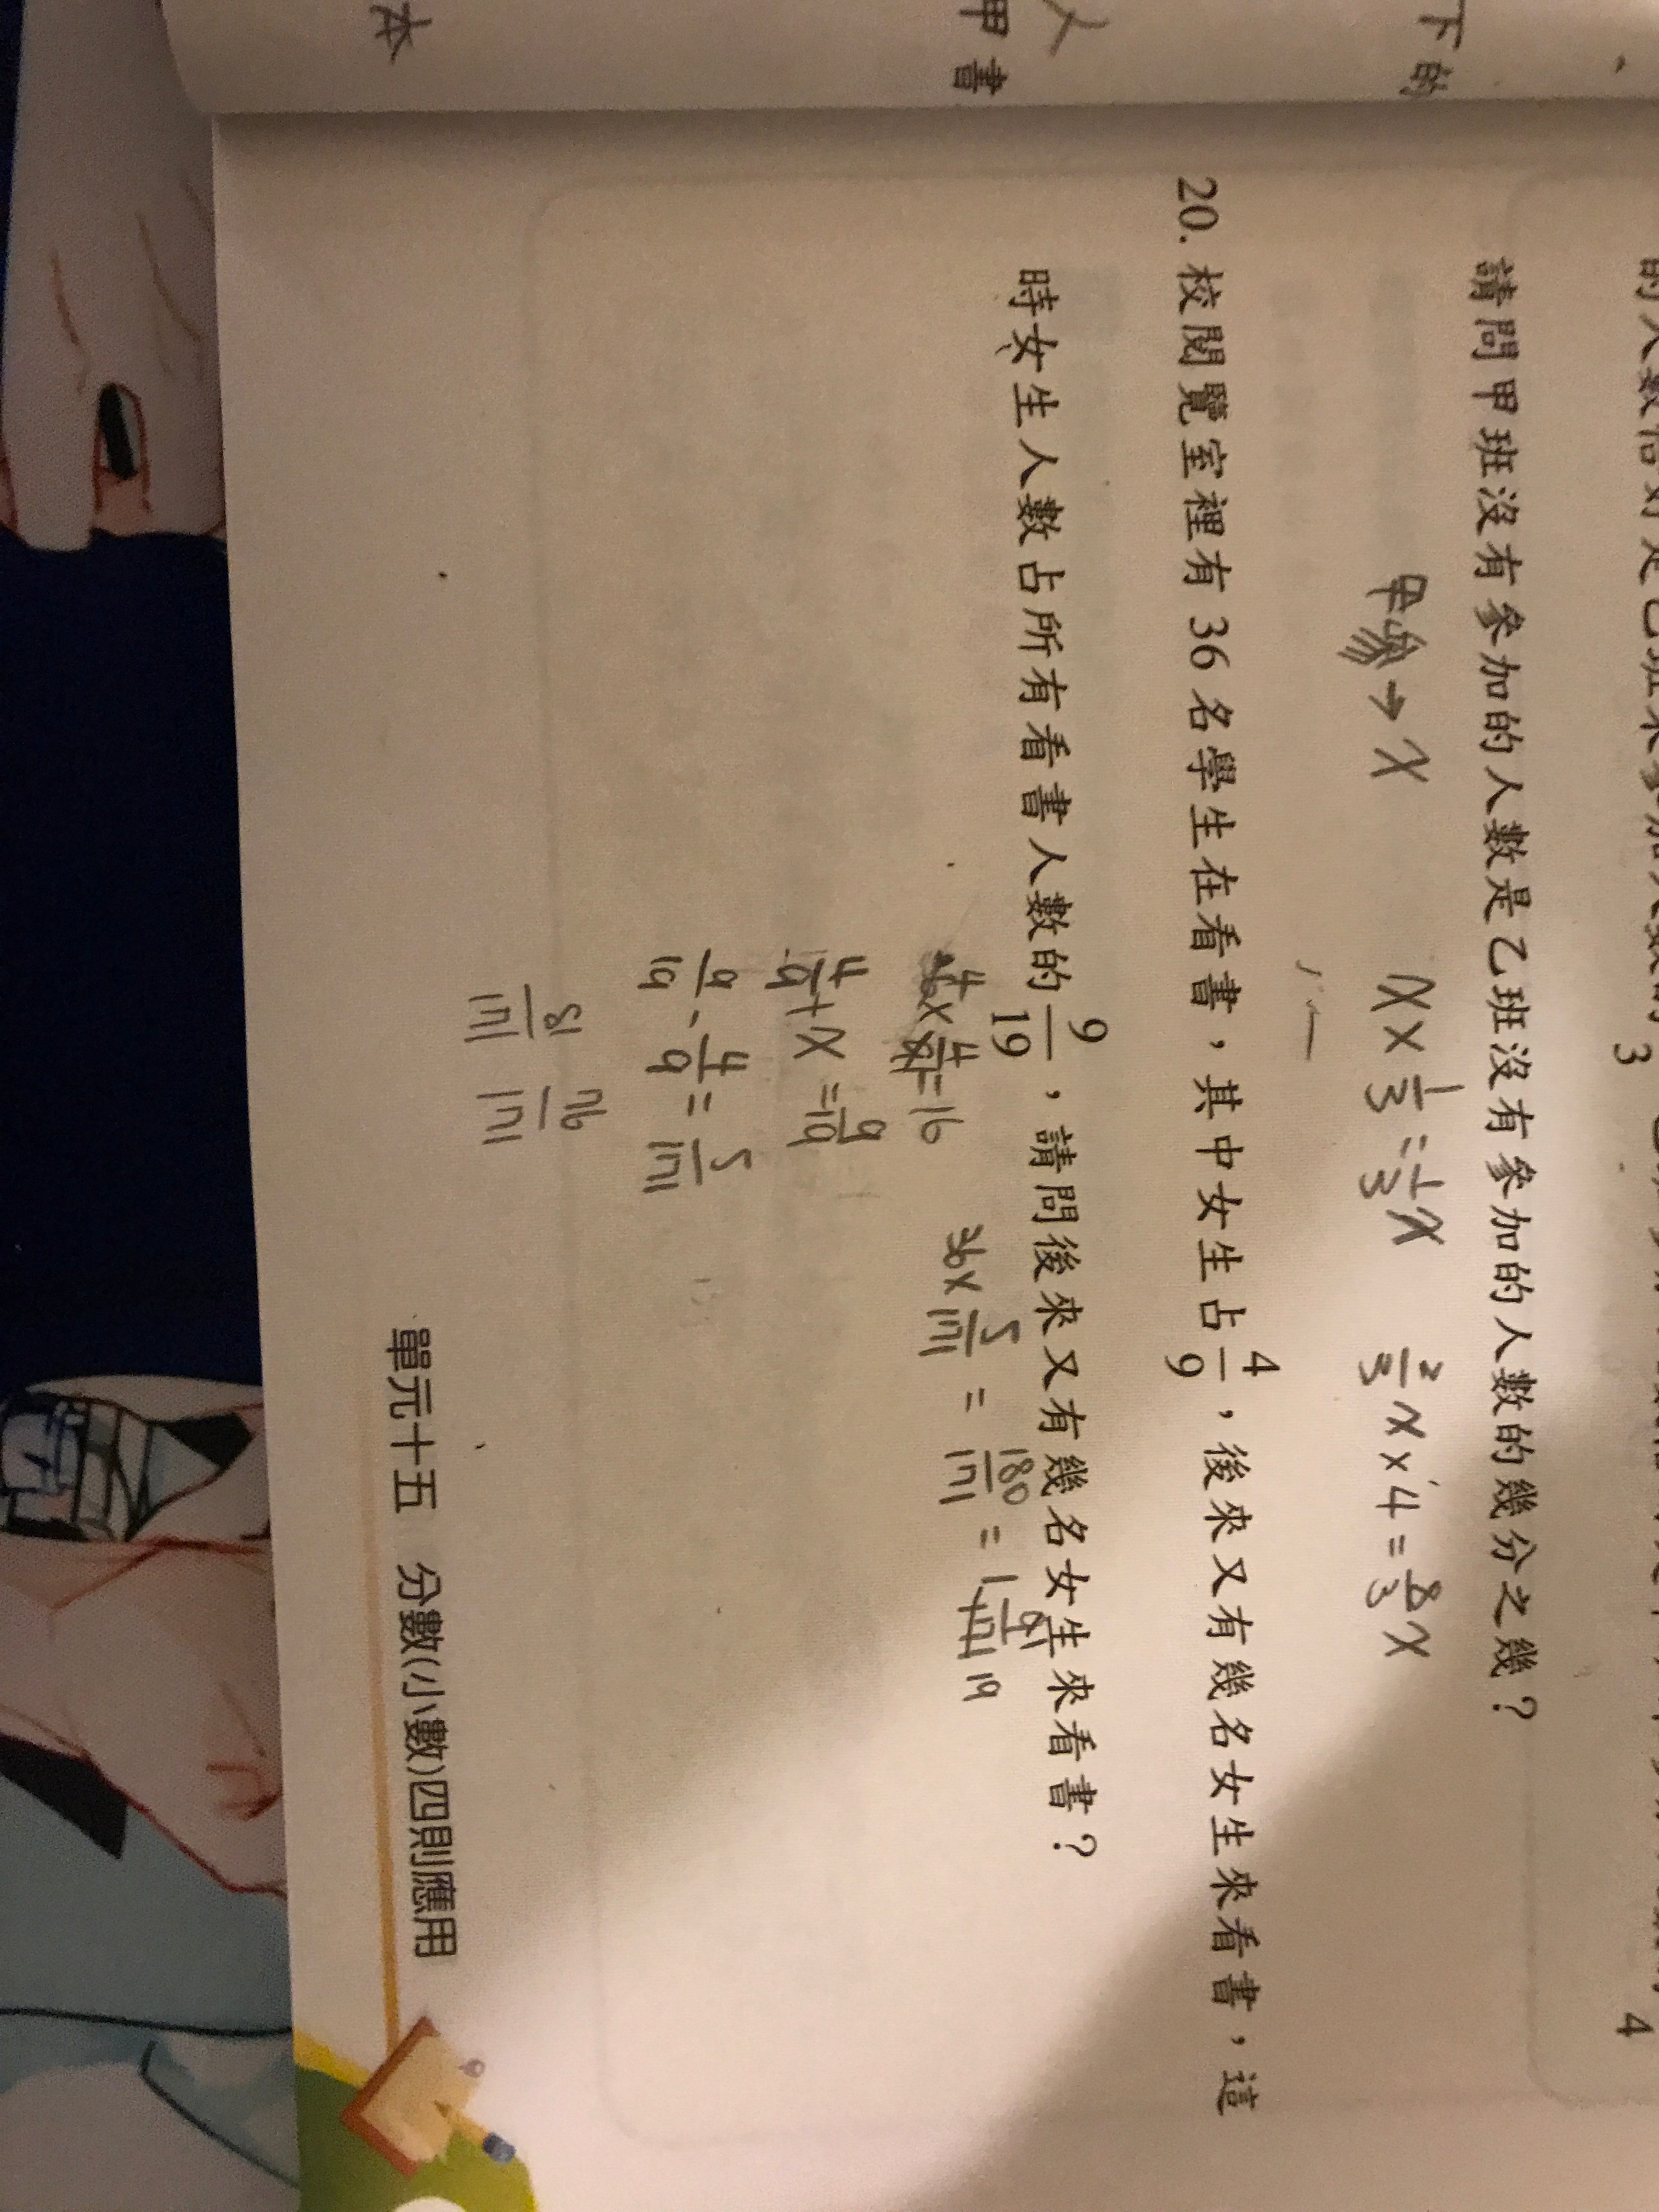 本
甲書
人
下的
3
4
請問甲班沒有參加的人數是乙班沒有參加的人數的幾分之幾？
甲 → x
1x × 1/3 = 1/3 x
2/3 x × 4 = 8/3 x
20. 校閱覽室裡有 36 名學生在看書，其中女生占 4/9，後來又有幾名女生來看書，這
時女生人數占所有看書人數的 9/19，請問後來又有幾名女生來看書？
36 × 4/9 = 16
36 × 5/171 = 180/171 = 1
19
4/9 + x = 9/19
9/19 - 4/9 = 5/171
81/171 76/171
單元十五 分數(小數)四則應用